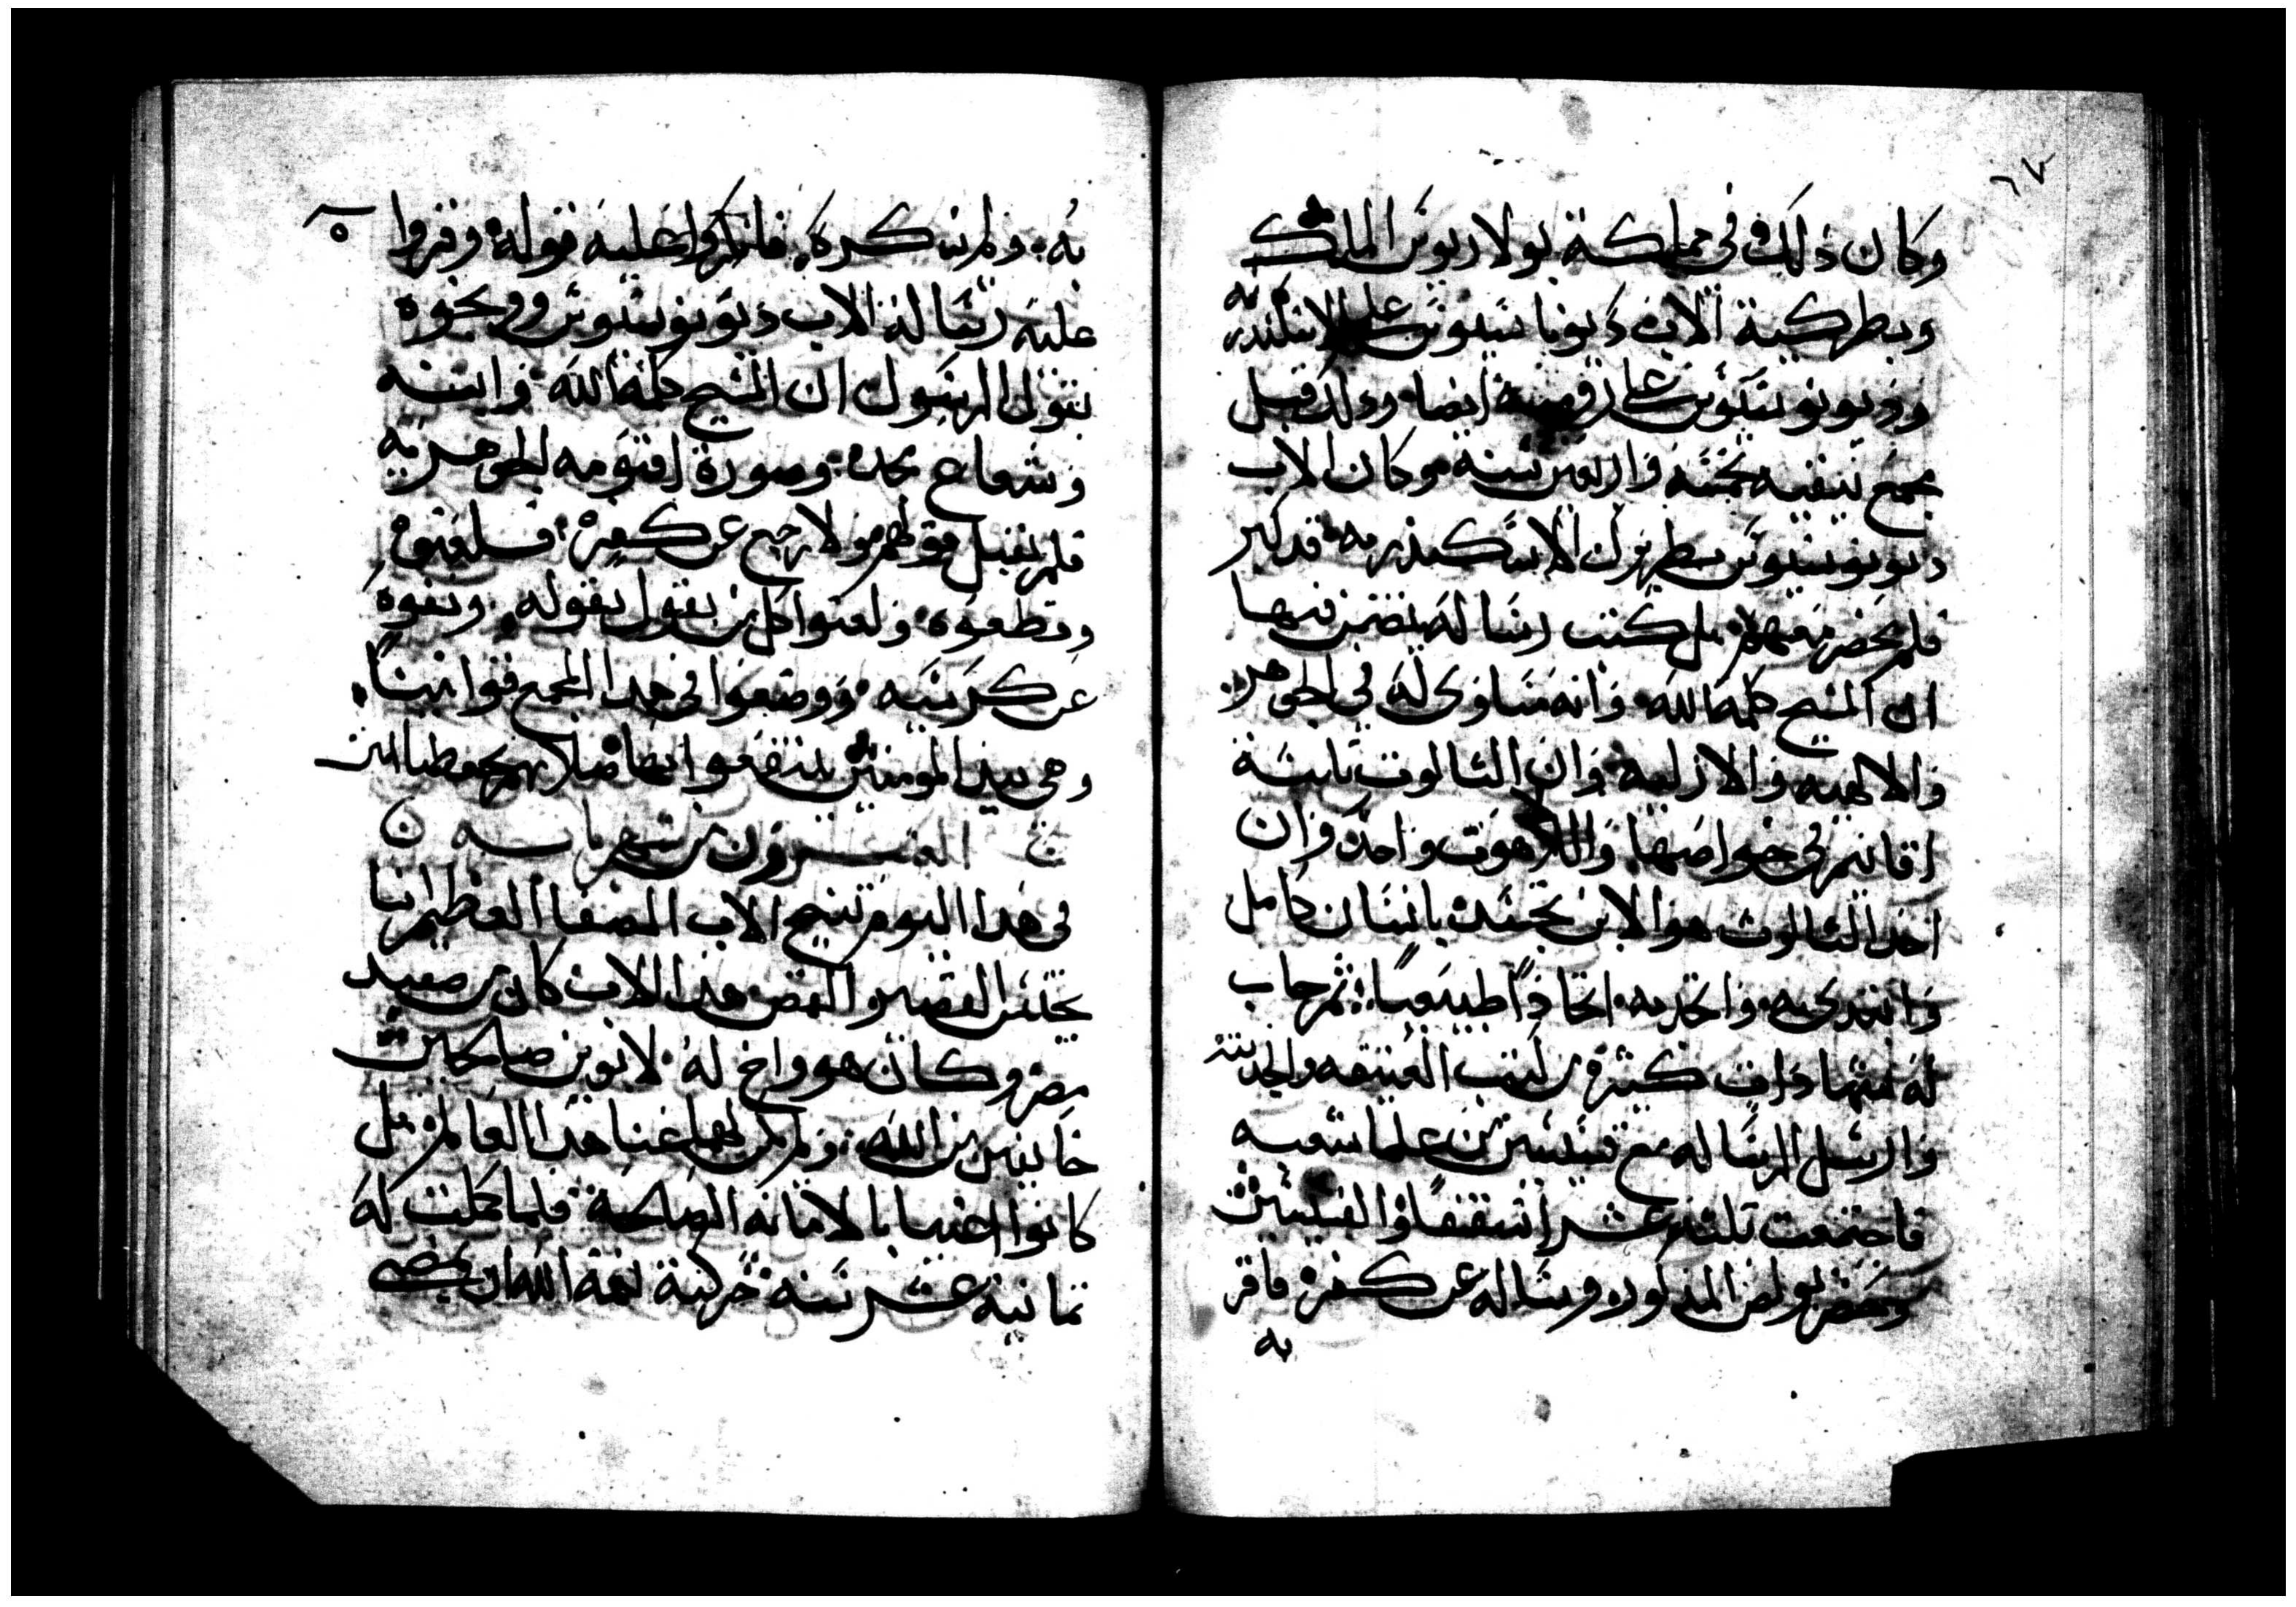 وكان ذلك في مملكة بولاريوس الملك
وبطركية الاب ديوناسيوس على الاسكندريه
وديونوسيوس على روميه ايضا وذلك قبل
مجمع نيقيه بخمسه واربعين سنه وكان الاب
ديونوسيوس بطريرك الاسكندريه قد كبر
فلم يحضر معهم بل كتب رساله يتضمن فيها
ان المسيح كلمة الله وانه مساوى له في الجوهر
والالهيه والازليه وان الثالوث ثابتة
اقانيم في خواصها واللاهوت واحد وان
احد الثالوث هو الابن تجسد بانسان كامل
واتحد به اتحادًا طبيعيًا ثم جاب
له شهادات كثيره من كتب العتيقه والحديثه
وارسل الرساله مع قسيسين من علما شعبه
فاجتمعت ثلثة عشر اسقفًا والقسيسين
وحضر بولص المذكور وساله عن كفره فاقر
به
به ولم ينكره فانكروا عليه قوله وقروا
عليه رسالة الاب ديونوسيوس ووبخوه
بقول الرسول ان المسيح كلمة الله وابنه
وشعاع مجده وصورة اقنومه الجوهريه
فلم يقبل قولهم ولا رجع عن كفره فلعنوه
وقطعوه ولعنوا كل من يقول بقوله ونفوه
عن كرسيه ووضعوا في هذا المجمع قوانينًا
وهي بيد المومنين ينتفعوا بها صلاتهم تحفظنا امين
العشرون من شهر بابه
في هذا اليوم تنيح الاب المصفا العظيم انبا
يحنس القصير القمص هذا الاب كان من صعيد
مصر وكان هو واخ له لابوين صالحين
خايفين من الله ولم يكن لهما غنا هذا العالم بل
كانوا اغنيا بالامانه الصالحة فلما كملت له
ثمانية عشر سنه حركته نعمة الله ان يمضي